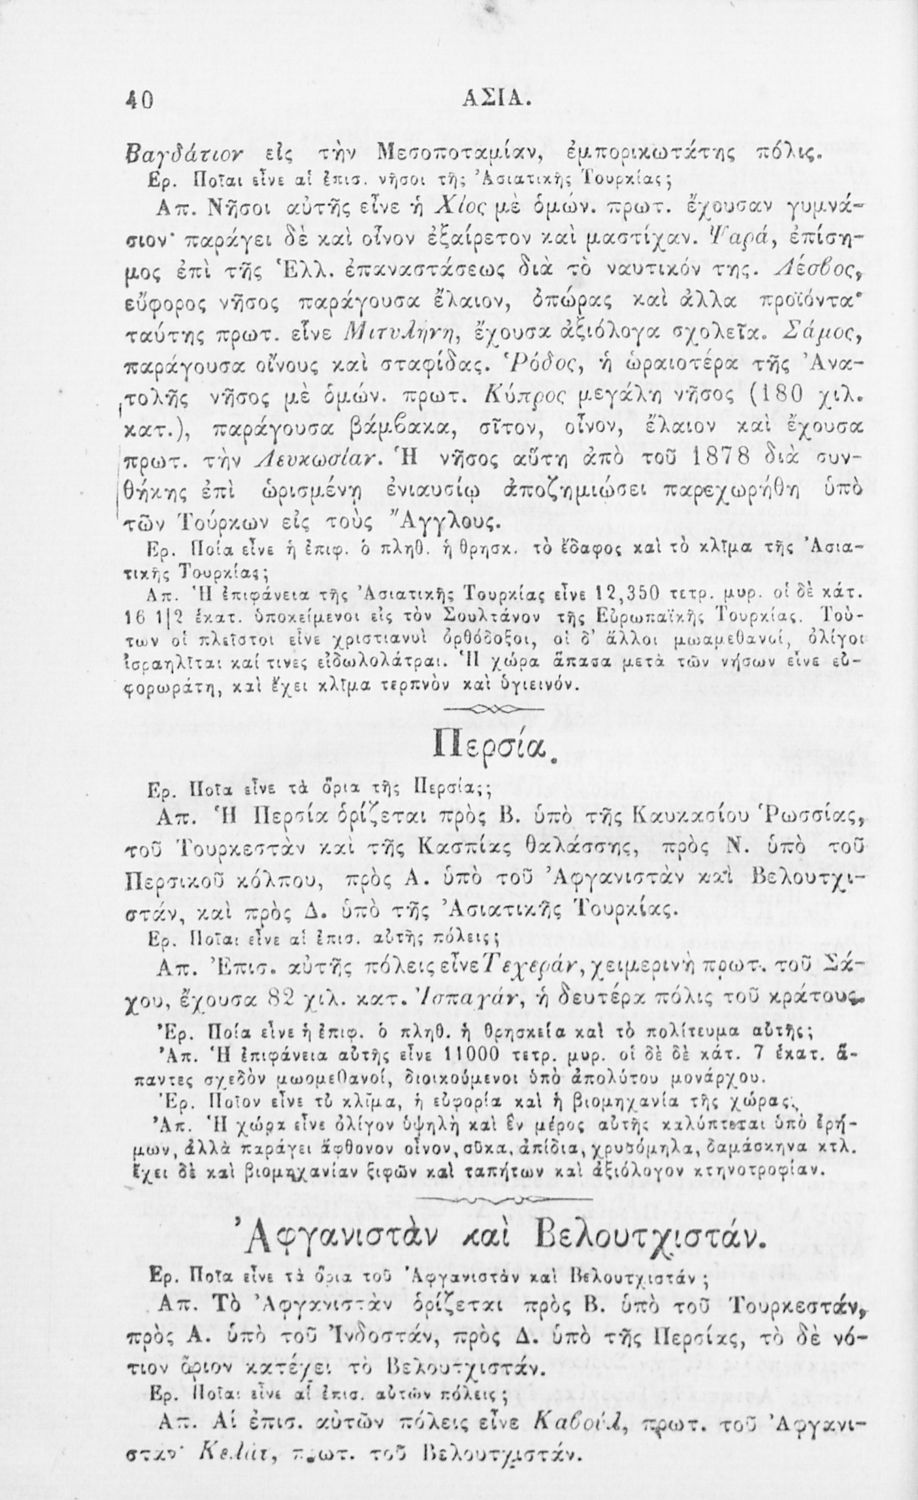 40 ΑΣΙΑ.
Βαγδάτιον εἰς τὴν Μεσοποταμίαν, ἐμπορικωτάτης πόλις.
Ερ. Ποῖαι εἶνε αἱ ἐπισ. νῆσοι τῆς Ἀσιατικῆς Τουρκίας;
Απ. Νῆσοι αὐτῆς εἶνε ἡ Χίος μὲ ὁμών. πρωτ. ἔχουσαν γυμνά-
σιον· παράγει δὲ καὶ οἶνον ἐξαίρετον καὶ μαστίχαν. Ψαρά, ἐπίση-
μος ἐπὶ τῆς Ἑλλ. ἐπαναστάσεως διὰ τὸ ναυτικόν της. Λέσβος,
εὔφορος νῆσος παράγουσα ἔλαιον, ὀπώρας καὶ ἀλλα προϊόντα·
ταύτης πρωτ. εἶνε Μιτυλήνη, ἔχουσα ἀξιόλογα σχολεῖα. Σάμος,
παράγουσα οἴνους καὶ σταφίδας. Ῥόδος, ἡ ὡραιοτέρα τῆς Ἀνα-
τολῆς νῆσος μὲ ὁμών. πρωτ. Κύπρος μεγάλη νῆσος (180 χιλ.
κατ.), παράγουσα βάμβακα, σῖτον, οἶνον, ἔλαιον καὶ ἔχουσα
πρωτ. τὴν Λευκωσίαν. Ἡ νῆσος αὕτη ἀπὸ τοῦ 1878 διὰ συν-
θήκης ἐπὶ ὡρισμένη ἐνιαυσίῳ ἀποζημιώσει παρεχωρήθη ὑπὸ
τῶν Τούρκων εἰς τοὺς Ἄγγλους.
Ερ. Ποία εἶνε ἡ ἐπιφ. ὁ πληθ. ἡ θρησκ. τὸ ἔδαφος καὶ τὸ κλῖμα τῆς Ἀσια-
τικῆς Τουρκίας;
Απ. Ἡ ἐπιφάνεια τῆς Ἀσιατικῆς Τουρκίας εἶνε 12,350 τετρ. μυρ. οἱ δὲ κάτ.
16 1|2 ἑκατ. ὑποκείμενοι εἰς τὸν Σουλτάνον τῆς Εὐρωπαϊκῆς Τουρκίας. Τού-
των οἱ πλεῖστοι εἶνε χριστιανοὶ ὀρθόδοξοι, οἱ δ' ἄλλοι μωαμεθανοί, ὀλίγοι
ἰσραηλῖται καί τινες εἰδωλολάτραι. Ἡ χώρα ἅπασα μετὰ τῶν νήσων εἶνε εὐ-
φορωράτη, καὶ ἔχει κλῖμα τερπνὸν καὶ ὑγιεινόν.
Περσία.
Ερ. Ποῖα εἶνε τὰ ὅρια τῆς Περσίας;
Απ. Ἡ Περσία ὁρίζεται πρὸς Β. ὑπὸ τῆς Καυκασίου Ῥωσσίας,
τοῦ Τουρκεστὰν καὶ τῆς Κασπίας θαλάσσης, πρὸς Ν. ὑπὸ τοῦ
Περσικοῦ κόλπου, πρὸς Α. ὑπὸ τοῦ Ἀφγανιστὰν καὶ Βελουτχι-
στάν, καὶ πρὸς Δ. ὑπὸ τῆς Ἀσιατικῆς Τουρκίας.
Ερ. Ποῖαι εἶνε αἱ ἐπισ. αὐτῆς πόλεις;
Απ. Ἐπισ. αὐτῆς πόλεις εἶνε Τεχεράν, χειμερινὴ πρωτ. τοῦ Σά-
χου, ἔχουσα 82 χιλ. κατ. Ἰσπαχάν, ἡ δευτέρα πόλις τοῦ κράτους.
Ἐρ. Ποία εἶνε ἡ ἐπιφ. ὁ πληθ. ἡ θρησκεία καὶ τὸ πολίτευμα αὐτῆς;
Ἀπ. Ἡ ἐπιφάνεια αὐτῆς εἶνε 11000 τετρ. μυρ. οἱ δὲ δὲ κάτ. 7 ἑκατ. ἅ-
παντες σχεδὸν μωομεθανοί, διοικούμενοι ὑπὸ ἀπολύτου μονάρχου.
Ἐρ. Ποῖον εἶνε τὸ κλῖμα, ἡ εὐφορία καὶ ἡ βιομηχανία τῆς χώρας;
Ἀπ. Ἡ χώρα εἶνε ὀλίγον ὑψηλὴ καὶ ἓν μέρος αὐτῆς καλύπτεται ὑπὸ ἐρή-
μων, ἀλλὰ παράγει ἄφθονον οἶνον, σῦκα, ἀπίδια, χρυσόμηλα, δαμάσκηνα κτλ.
ἔχει δὲ καὶ βιομηχανίαν ξιφῶν καὶ ταπήτων καὶ ἀξιόλογον κτηνοτροφίαν.
Ἀφγανιστὰν καὶ Βελουτχιστάν.
Ερ. Ποῖα εἶνε τὰ ὅρια τοῦ Ἀφγανιστὰν καὶ Βελουτχιστάν;
Απ. Τὸ Ἀφγανιστὰν ὁρίζεται πρὸς Β. ὑπὸ τοῦ Τουρκεστάν,
πρὸς Α. ὑπὸ τοῦ Ἰνδοστάν, πρὸς Δ. ὑπὸ τῆς Περσίας, τὸ δὲ νό-
τιον ὅριον κατέχει τὸ Βελουτχιστάν.
Ερ. Ποῖαι εἶνε αἱ ἐπισ. αὐτῶν πόλεις;
Απ. Αἱ ἐπισ. αὐτῶν πόλεις εἶνε Καβούλ, πρωτ. τοῦ Ἀφγανι-
σταν· Κελάτ, πρωτ. τοῦ Βελουτχιστάν.